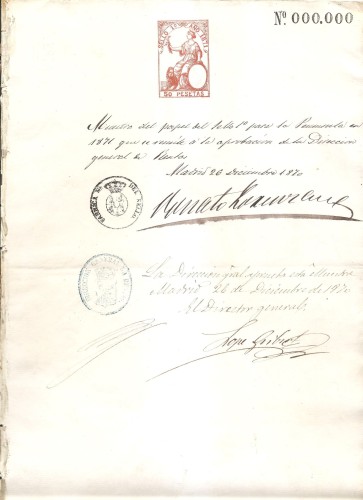 Nº 000.000
SELLO 1º AÑO 1871
50 PESETAS
Muestra del papel del Sello 1º para la Peninsula en
1871 que se remite á la aprobacion de la Direccion
general de Rentas
Madrid 26 Diciembre 1870
FABRICA DEL SELLO
Renato
La Direccion gral aprueba esta Muestra
Madrid 26 de Diciembre de 1870
El Director general,
Lope Gisbert